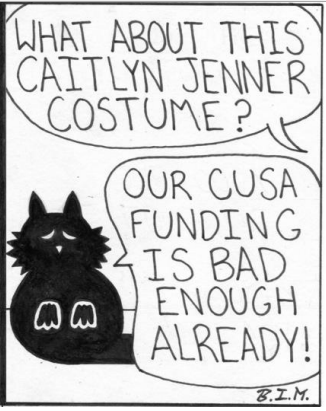 WHAT ABOUT THIS
CAITLYN JENNER
COSTUME?
OUR CUSA
FUNDING
IS BAD
ENOUGH
ALREADY!
B.I.M.